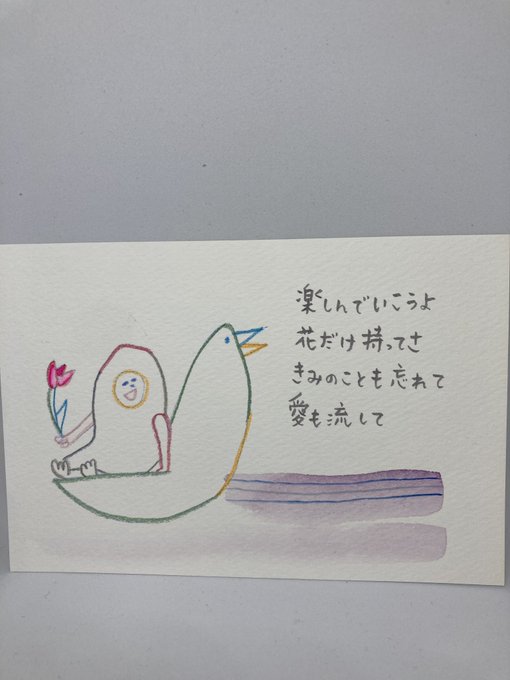 楽しんでいこうよ
花だけ持ってさ
きみのことも忘れて
愛も流して